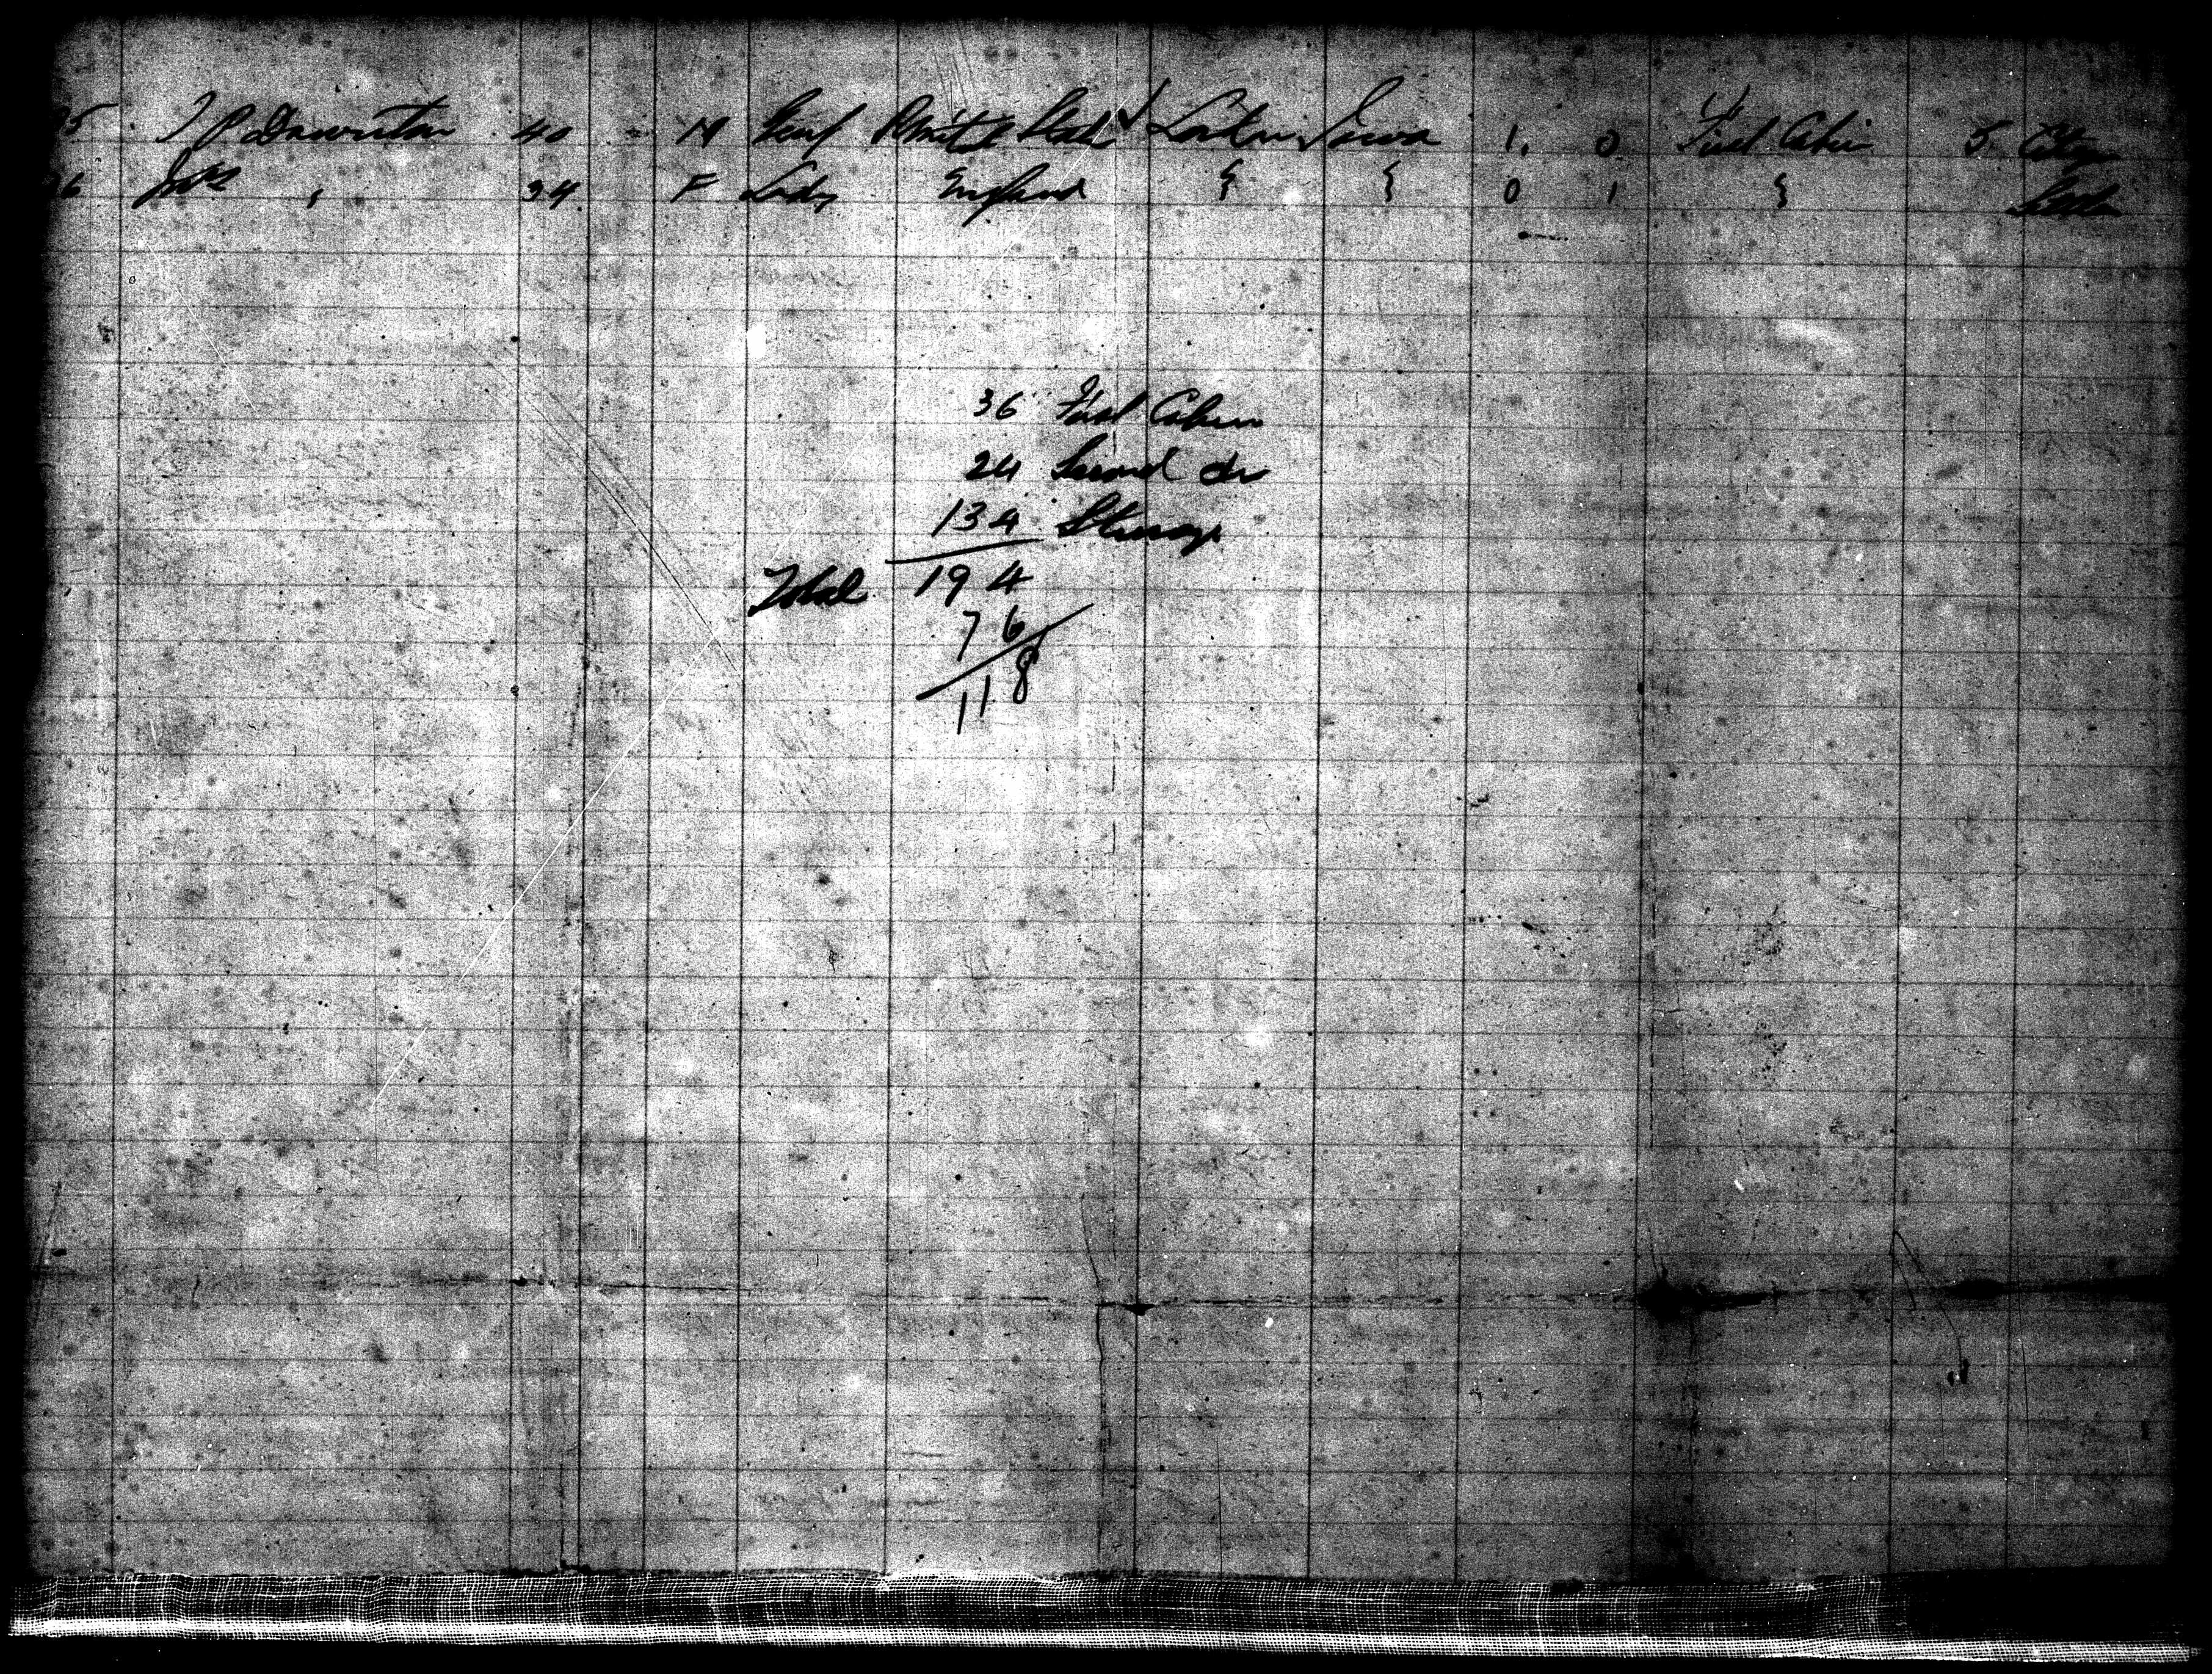 35 J P Downton 40 - M Gent United States London Iowa 1. 0 First Cabin 5
36 Mrs " 34 F Lady England " " 0 1 "
36 First Cabin
24 Second do
134 Steerage
Total 194
76
118